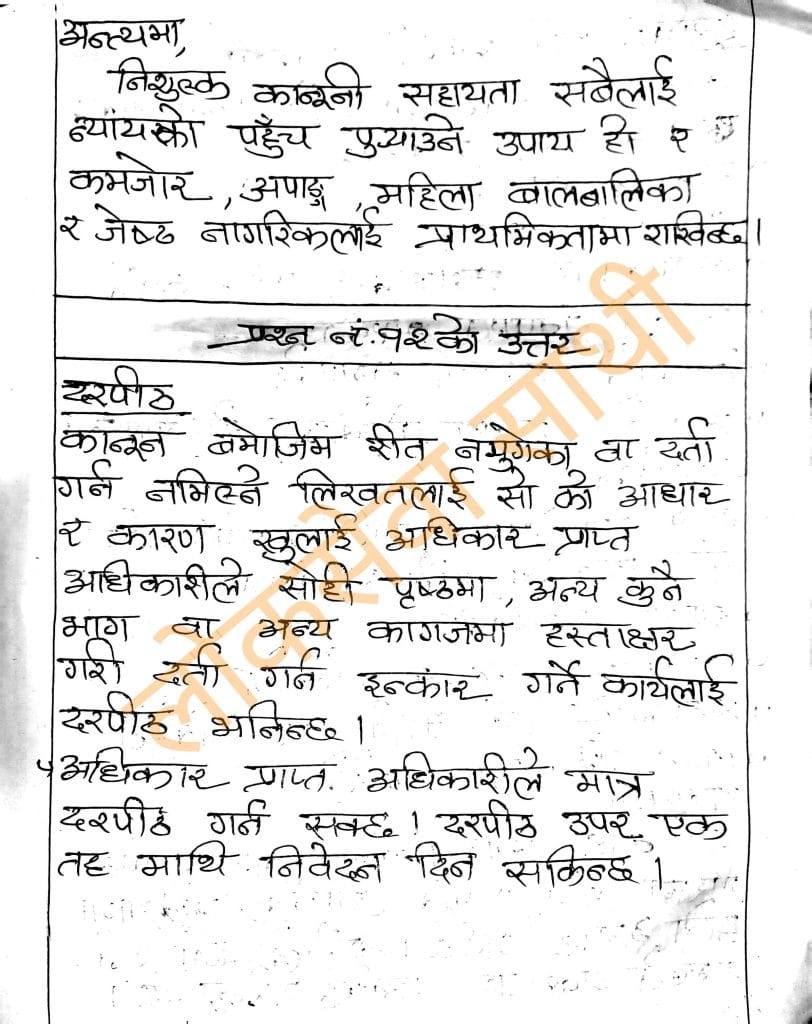 अन्त्यमा,
निशुल्क कानूनी सहायता सबैलाई
न्यायको पहुँच पुर्‍याउने उपाय हो र
कमजोर, अपाङ्ग, महिला बालबालिका
र जेष्ठ नागरिकलाई प्राथमिकतामा राखिन्छ।
प्रश्न नं. १२ को उत्तर
दरपीठ
कानून बमोजिम रीत नपुगेका वा दर्ता
गर्न नमिल्ने लिखतलाई सो को आधार
र कारण खुलाई अधिकार प्राप्त
अधिकारीले सोही पृष्ठमा, अन्य कुनै
भाग वा अन्य कागजमा हस्ताक्षर
गरी दर्ता गर्न इन्कार गर्ने कार्यलाई
दरपीठ भनिन्छ।
अधिकार प्राप्त अधिकारीले मात्र
दरपीठ गर्न सक्छ। दरपीठ उपर एक
तह माथि निवेदन दिन सकिन्छ।
लोकसेवा साथी